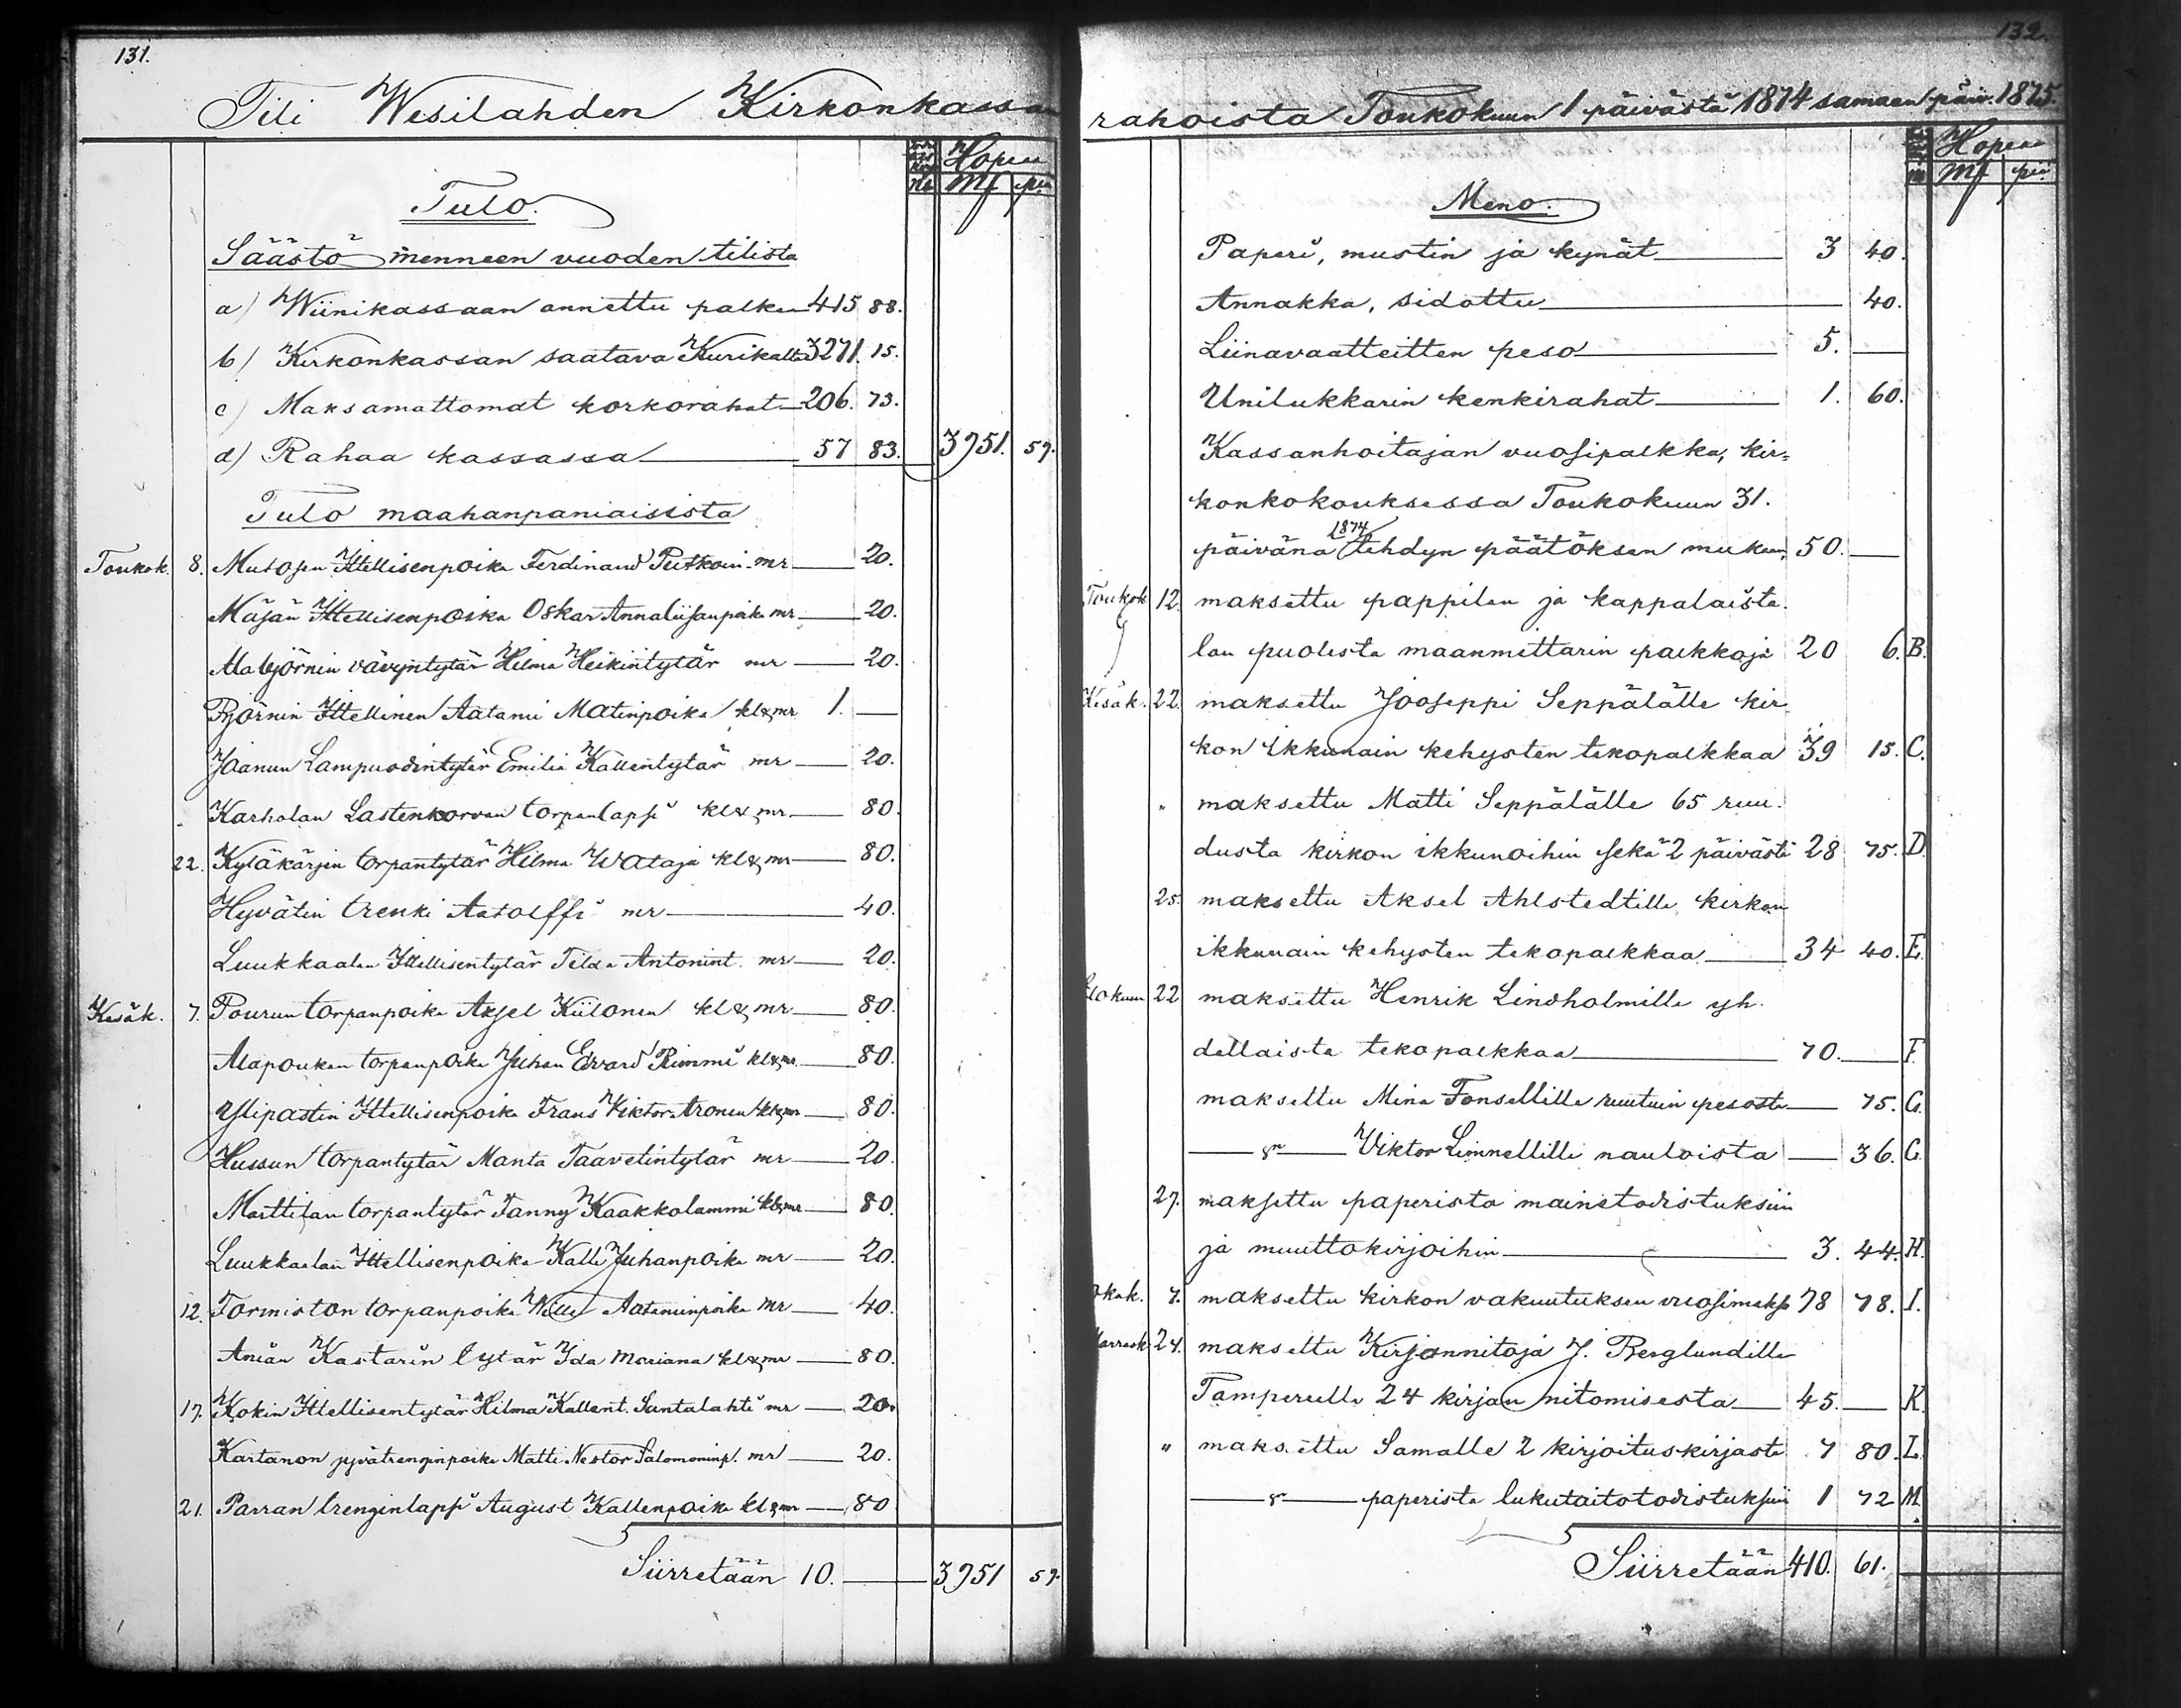 131.
Tili Wesilahden Kirkonkassan
Hopea
No Mk piä
Tulo.
Säästö menneen vuoden tilista
a) Wiinikassaan annettu palkka 415 88.
b) Kirkonkassan saatava Kurikalta 3271. 15.
c) Maksamattomat korkorahat 206. 73.
d) Rahaa kassassa 57 83. 3951. 59.
Tulo maahanpaniaisista
Toukok. 8. Mutosen Ittellisenpoika Ferdinand Peitkoin mr 20.
Mäjän Ittellisenpoika Oskar Annaliisanpoika mr 20.
Alabjörnin vävyntytär Hilma Heikintytär mr 20.
Pjörnin Ittellinen Aatami Matinpoika kl&mr 1.
Jaanun Lampuodintytär Emilia Kallentytär mr 20.
Karholan Lastenkorvan torpanlapsi kl&mr 80.
22. Kyläkärjin torpantytär Hilma Wataja kl&mr 80.
Hyvätin trenki Aatolffi mr 40.
Luukkaalan Ittellisentytär Tilda Antonint. mr 20.
Kesäk. 7. Pourun torpanpoika Aksel Kiilonen kl&mr 80.
Alapoukan torpanpoika Juhan Edvard Rimmi kl&mr 80.
Ylipastin Ittellisenpoika Frans Viktor Aronen kl&mr 80.
Hussun torpantytär Manta Taavetintytär mr 20.
Marttilan torpantytär Fanny Kaakkolammi kl&mr 80.
Luukkaalan Ittellisenpoika Kalle Juhanpoika mr 20.
12. Tormiston torpanpoika Wille Aataminpoika mr 40.
Aniän Kastarin tytär Ida Mariana kl&mr 80.
17. Kokin Ittellisentytär Hilma Kallent. Santalahti mr 20.
Kartanon jyvätrenginpoika Matti Nestor Salomoninp. mr 20.
21. Parran trenginlapsi August Kallenpoika kl&mr 80
Siirretään 10. 3951 59.
132.
rahoista Toukokuun 1 päivästä 1874 samaen päiv. 1875.
Hopea
Mk piä
Meno.
Paperi, mustin ja kynät 3 40.
Annakka, sidottu 40.
Liinavaatteitten peso 5.
Unilukkarin kenkirahat 1. 60.
Kassanhoitajan vuosipalkka, kir=
konkokouksessa Toukokuun 31.
päivänä 1874 tehdyn päätöksen mukaan, 50.
Toukok. 12. maksettu pappilan ja kappalaista.
lan puolesta maanmittarin palkkoja 20 6. B.
Kesäk. 22. maksettu Jooseppi Seppälälle kir
kon ikkunain kehysten tekopalkkaa 39 15. C.
" maksettu Matti Seppälälle 65 ruu.
dusta kirkon ikkunoihin sekä 2 päivästä 28 75. D.
25. maksettu Aksel Ahlstedtille kirkon
ikkunain kehysten tekopalkkaa 34 40. E.
Elokuun 22 maksettu Henrik Lindholmille yh.
dellaista tekopalkkaa 70. F.
maksettu Mina Fonsellille ruutuin pesosta 75. G.
Viktor Limnellille nauloista 36. G.
27. maksettu paperista mainetodistuksiin
ja muuttokirjoihin 3. 44. H.
Lokak. 7. maksettu kirkon vakuutuksen vuosimakso 78 78. I.
Marrask. 24. maksettu Kirjannitoja J. Berglundille
Tampereelle 24 kirjan nitomisesta 45. K.
" maksettu Samalle 2 kirjoituskirjasta 7 80. L.
paperista lukutaitotodistuksiin 1 72 M.
Siirretään 410. 61.